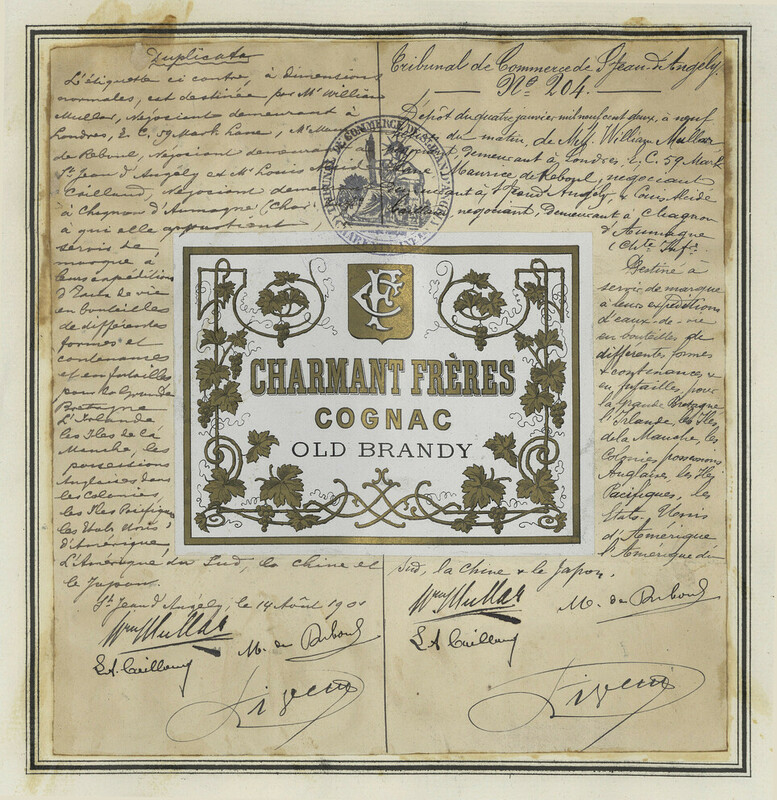 Duplicata
L'étiquette ci contre, à dimensions
normales, est destinée par Mr William
Mullar, Négociant demeurant à
Londres, E. C. 59 Mark Lane, Mr
de Reboul, Négociant demeurant à
St Jean d'Angély et Mr Louis
Caillaud, Négociant
à Chagnon d'Aumagne
à qui elle appartient
servir de
marque à
leurs expéditions
d'Eaux de vie
en bouteilles
de différentes
formes et
contenances
et en futailles
pour la Grande
Bretagne
L'Irlande
les Iles de la
Manche, les
possessions
Anglaises dans
les Colonies,
les Iles Pacifique
les Etats Unis
d'Amérique,
L'Amérique du Sud, la Chine et
le Japon.
St Jean d'Angély, le 14 Août 1901
Wm Mullar
M. de Reboul
L A. Caillaud
Tribunal de Commerce de St Jean d'Angély.
No 204.
Dépôt du quatre janvier mil neuf cent deux, à neuf
heures du matin, de Mrs William Mullar
demeurant à Londres. E. C. 59 Mark
Lane Maurice de Reboul, négociant
demeurant à St Jean d'Angély, &
négociant, demeurant à Chagnon
d'Aumagne
(Chte Infre
Destiné à
servir de marque
à leurs expéditions
d'eaux-de-vie
en bouteilles de
différentes formes
& contenances, &
en futailles, pour
la Grande Bretagne
l'Irlande, les Iles
de la Manche, les
Colonies, possessions
Anglaises, les Iles
Pacifiques, les
Etats-Unis
d'Amérique
l'Amérique du
Sud, la Chine & le Japon.
Wm Mullar
M. de Reboul
L A Caillaud
TRIBUNAL DE COMMERCE DE St JEAN D'ANGELY
CF
CHARMANT FRÈRES
COGNAC
OLD BRANDY